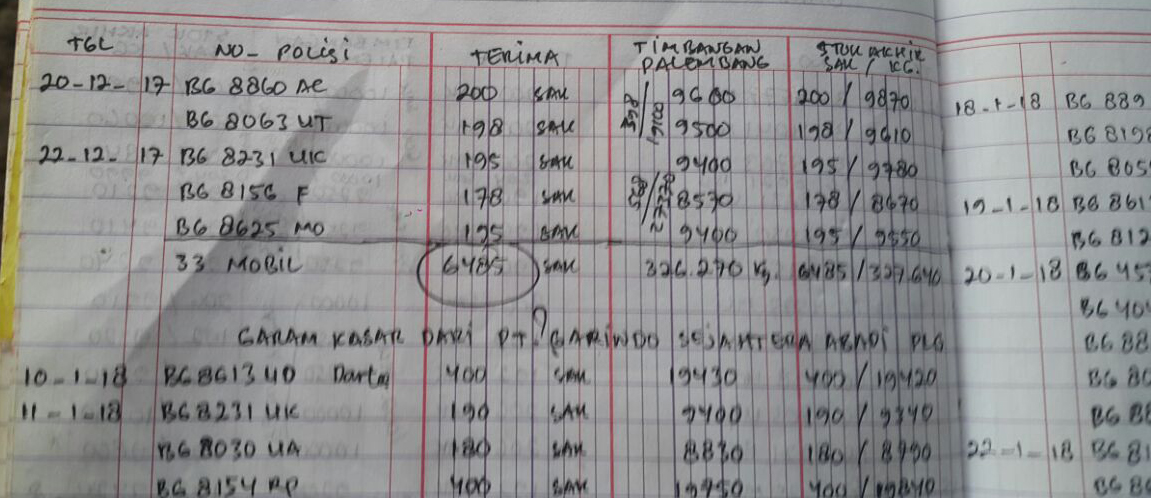 TGL NO-POLISI TERIMA TIMBANGAN PALEMBANG STOK AKHIR SAK / KG.
20-12-17 BG 8860 AC 200 SAK 9600 200 / 9870
BG 8063 UT 198 SAK 9500 198 / 9610
22-12-17 BG 8231 UK 195 SAK 9400 195 / 9780
BG 8156 F 178 SAK 8570 178 / 8670
BG 8625 MO 195 SAK 9400 195 / 9550
33 MOBIL 6485 SAK 326.270 Kg. 6485 / 327.640
GARAM KASAR DARI PT. GARINDO SEJAHTERA ABADI PLG
10-1-18 BG 8613 UO 400 SAK 19430 400 / 19420
11-1-18 BG 8231 UK 190 SAK 9400 190 / 9340
BG 8030 UA 180 SAK 8830 180 / 8990
BG 8154 RP 400 SAK 400 /
18-1-18 BG 889
BG 8198
BG 805
19-1-18 BG 861
BG 812
20-1-18 BG 457
BG 404
BG 88
BG 80
BG 88
22-1-18 BG 81
BG 86